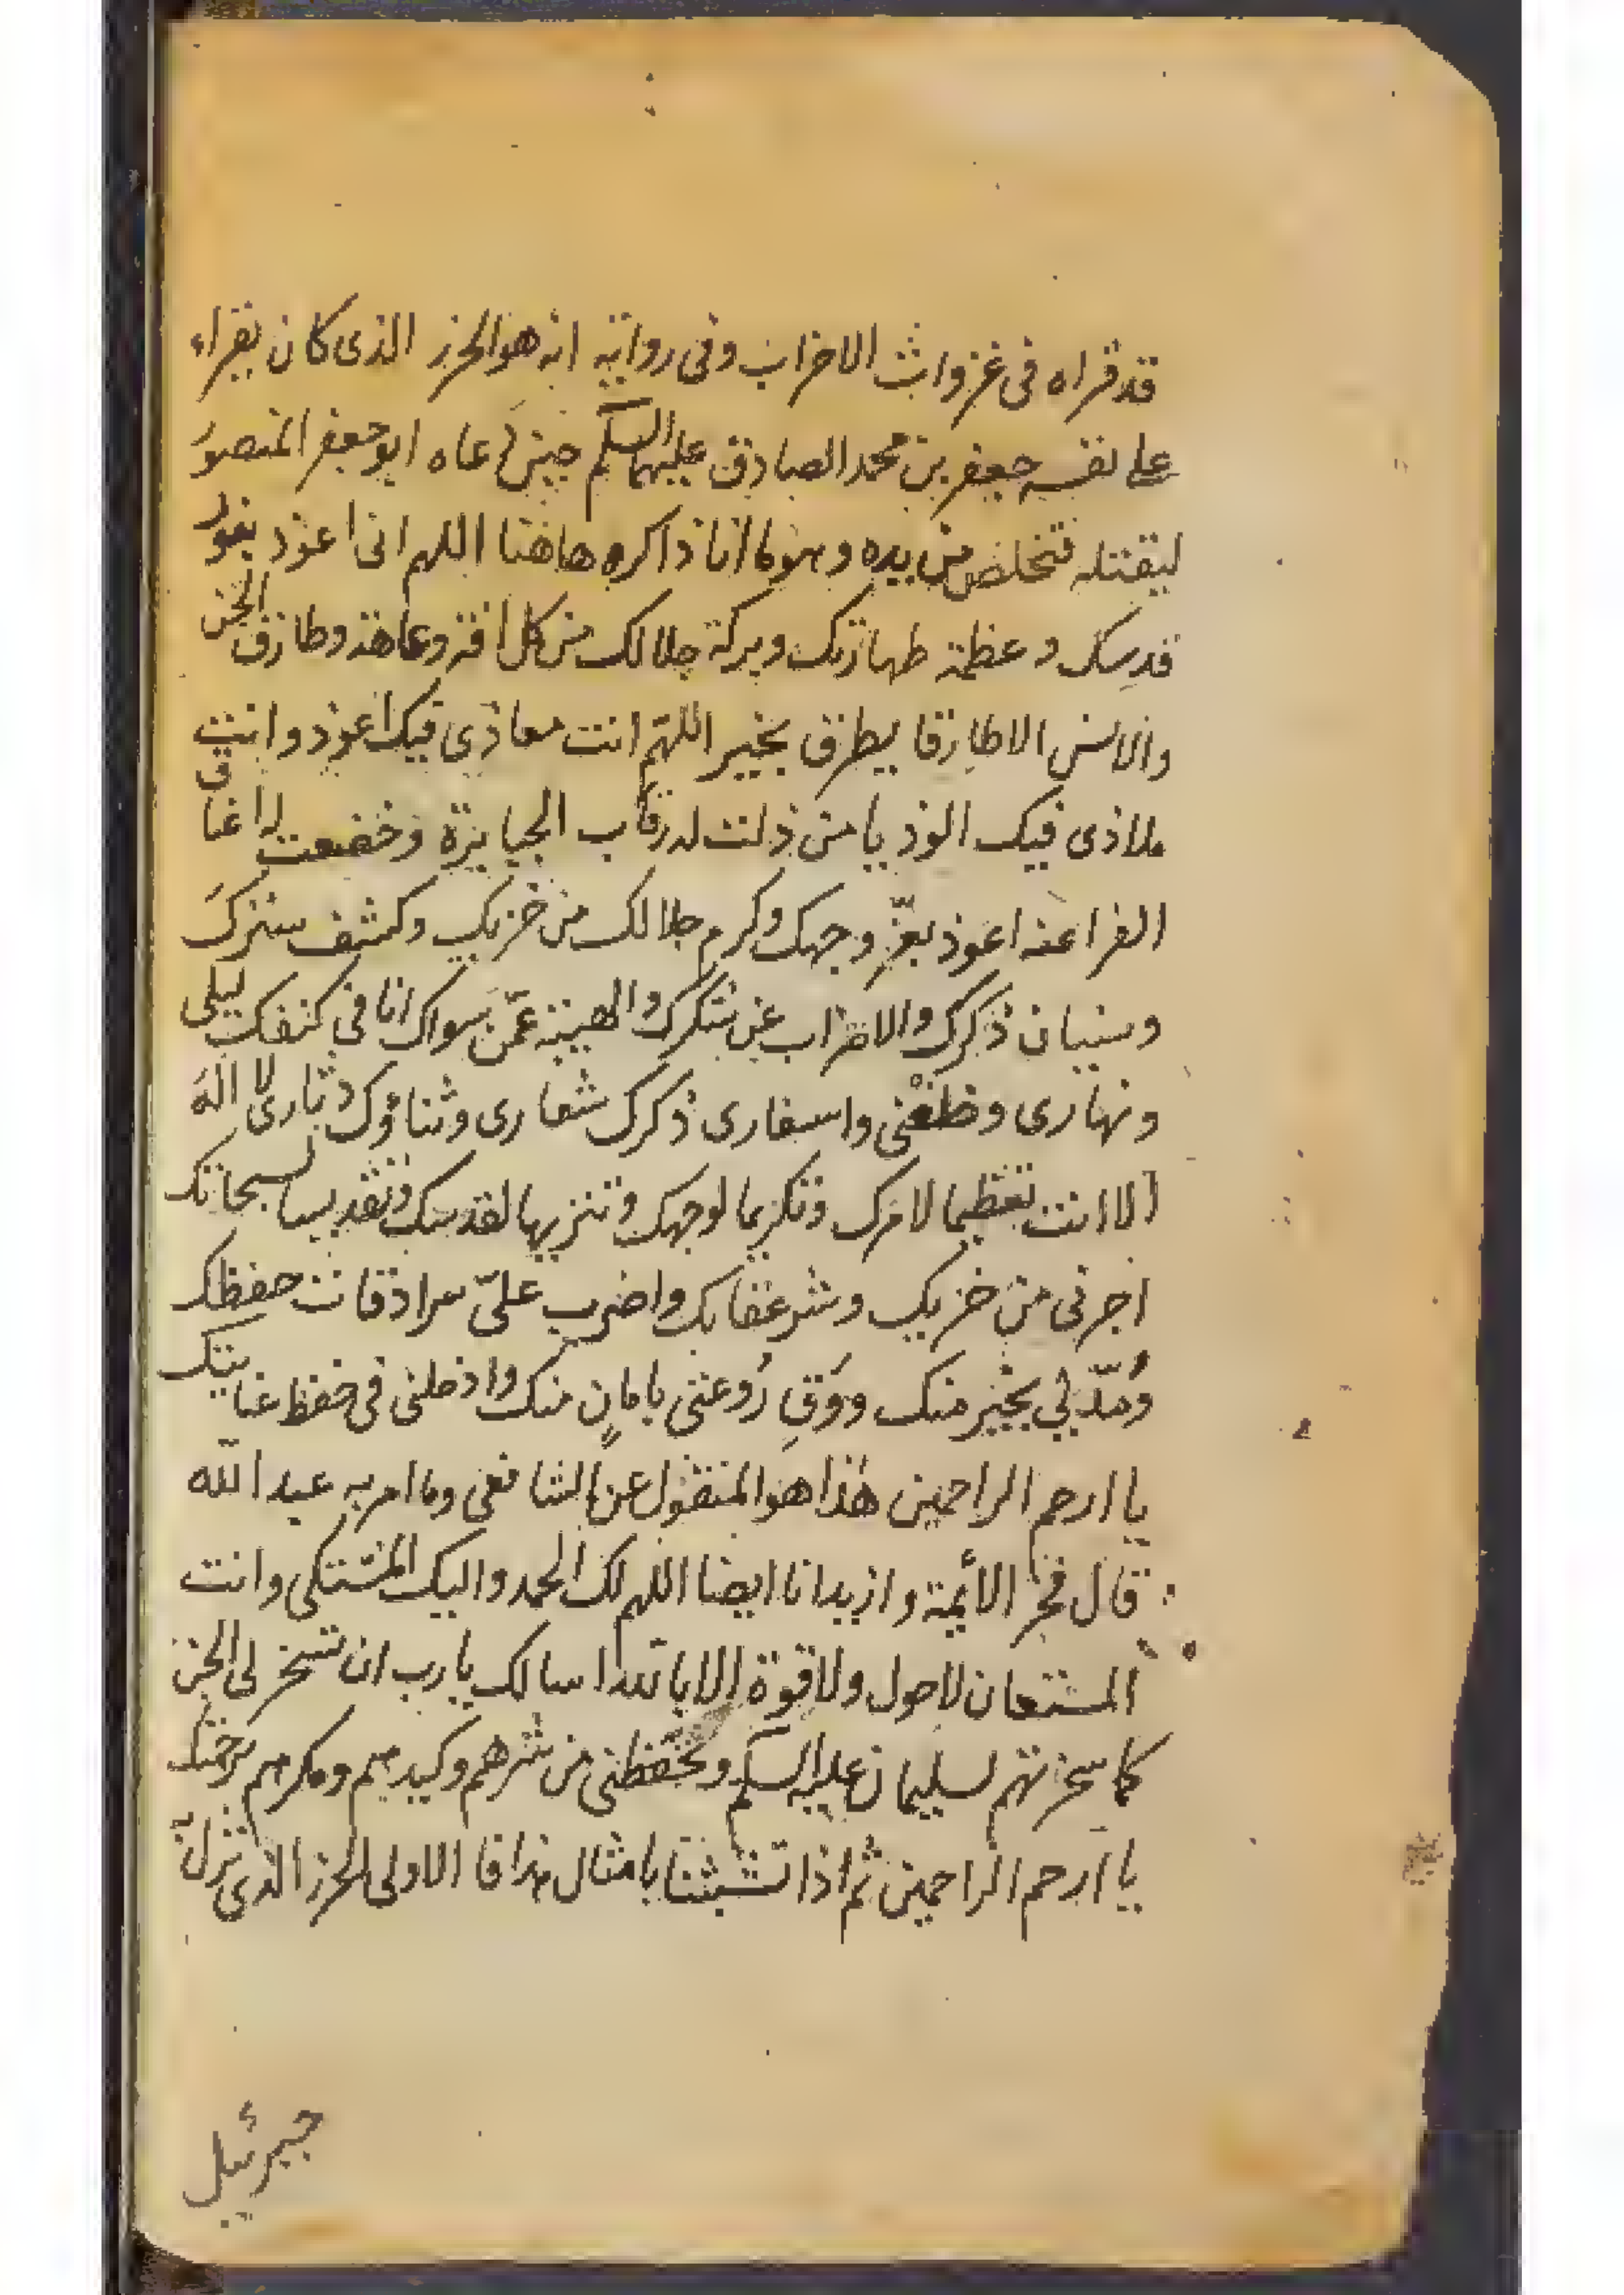 قد قراه فى غزوات الاحزاب وفى رواية انه هو الحرز الذى كان يقراء
على نفسه جعفر بن محمد الصادق عليهما السلم حين دعاه ابو جعفر المنصور
ليقتله فتخلص من يده وهو ما انا ذاكره هاهنا اللهم انى اعوذ بنور
قدسك وعظمة طهارتك وبركة جلالك من كل افة وعاهة وطارق الجن
والانس الا طارقا يطرق بخير اللهم انت معاذى فبك اعوذ وانت
ملاذى فبك الوذ يا من ذلت له رقاب الجبابرة وخضعت له اعناق
الفراعنه اعوذ بعزّ وجهك وكرم جلالك من خزيك وكشف سترك
ونسيان ذكرك والاضراب عن شكرك والهيبة عمّن سواك انا فى كنفك ليلى
ونهارى وظعْنى واسفارى ذكرك شعارى وثناؤك دثارى لا اله
الا انت تعظيما لامرك وتكريما لوجهك وتنزيها لقدسك وتقديسا لسبحاتك
اجرنى من خزيك وشر عقابك واضرب علىّ سرادقات حفظك
ومُدّ لي بخير منك ووَقِ رُوعتى بامانٍ منك وادخلنى فى حفظ عنايتك
يا ارحم الراحمين هذا هو المنقول عن الشافعى وما امر به عبد الله
قال فخر الأئمة وازيد انا ايضا اللهم لك الحمد واليك المشتكى وانت
المستعان لا حول ولا قوة الا بالله اسالك يا رب ان تسخر لى الجن
كما سخرتهم لسليمان عليه السلم وتحفظنى من شرهم وكيدهم ومكرهم برحمتك
يا ارحم الراحمين ثم اذا تشبثنا بامثال هذا فا الاولى الحرز الذى نزل به
جبرئيل